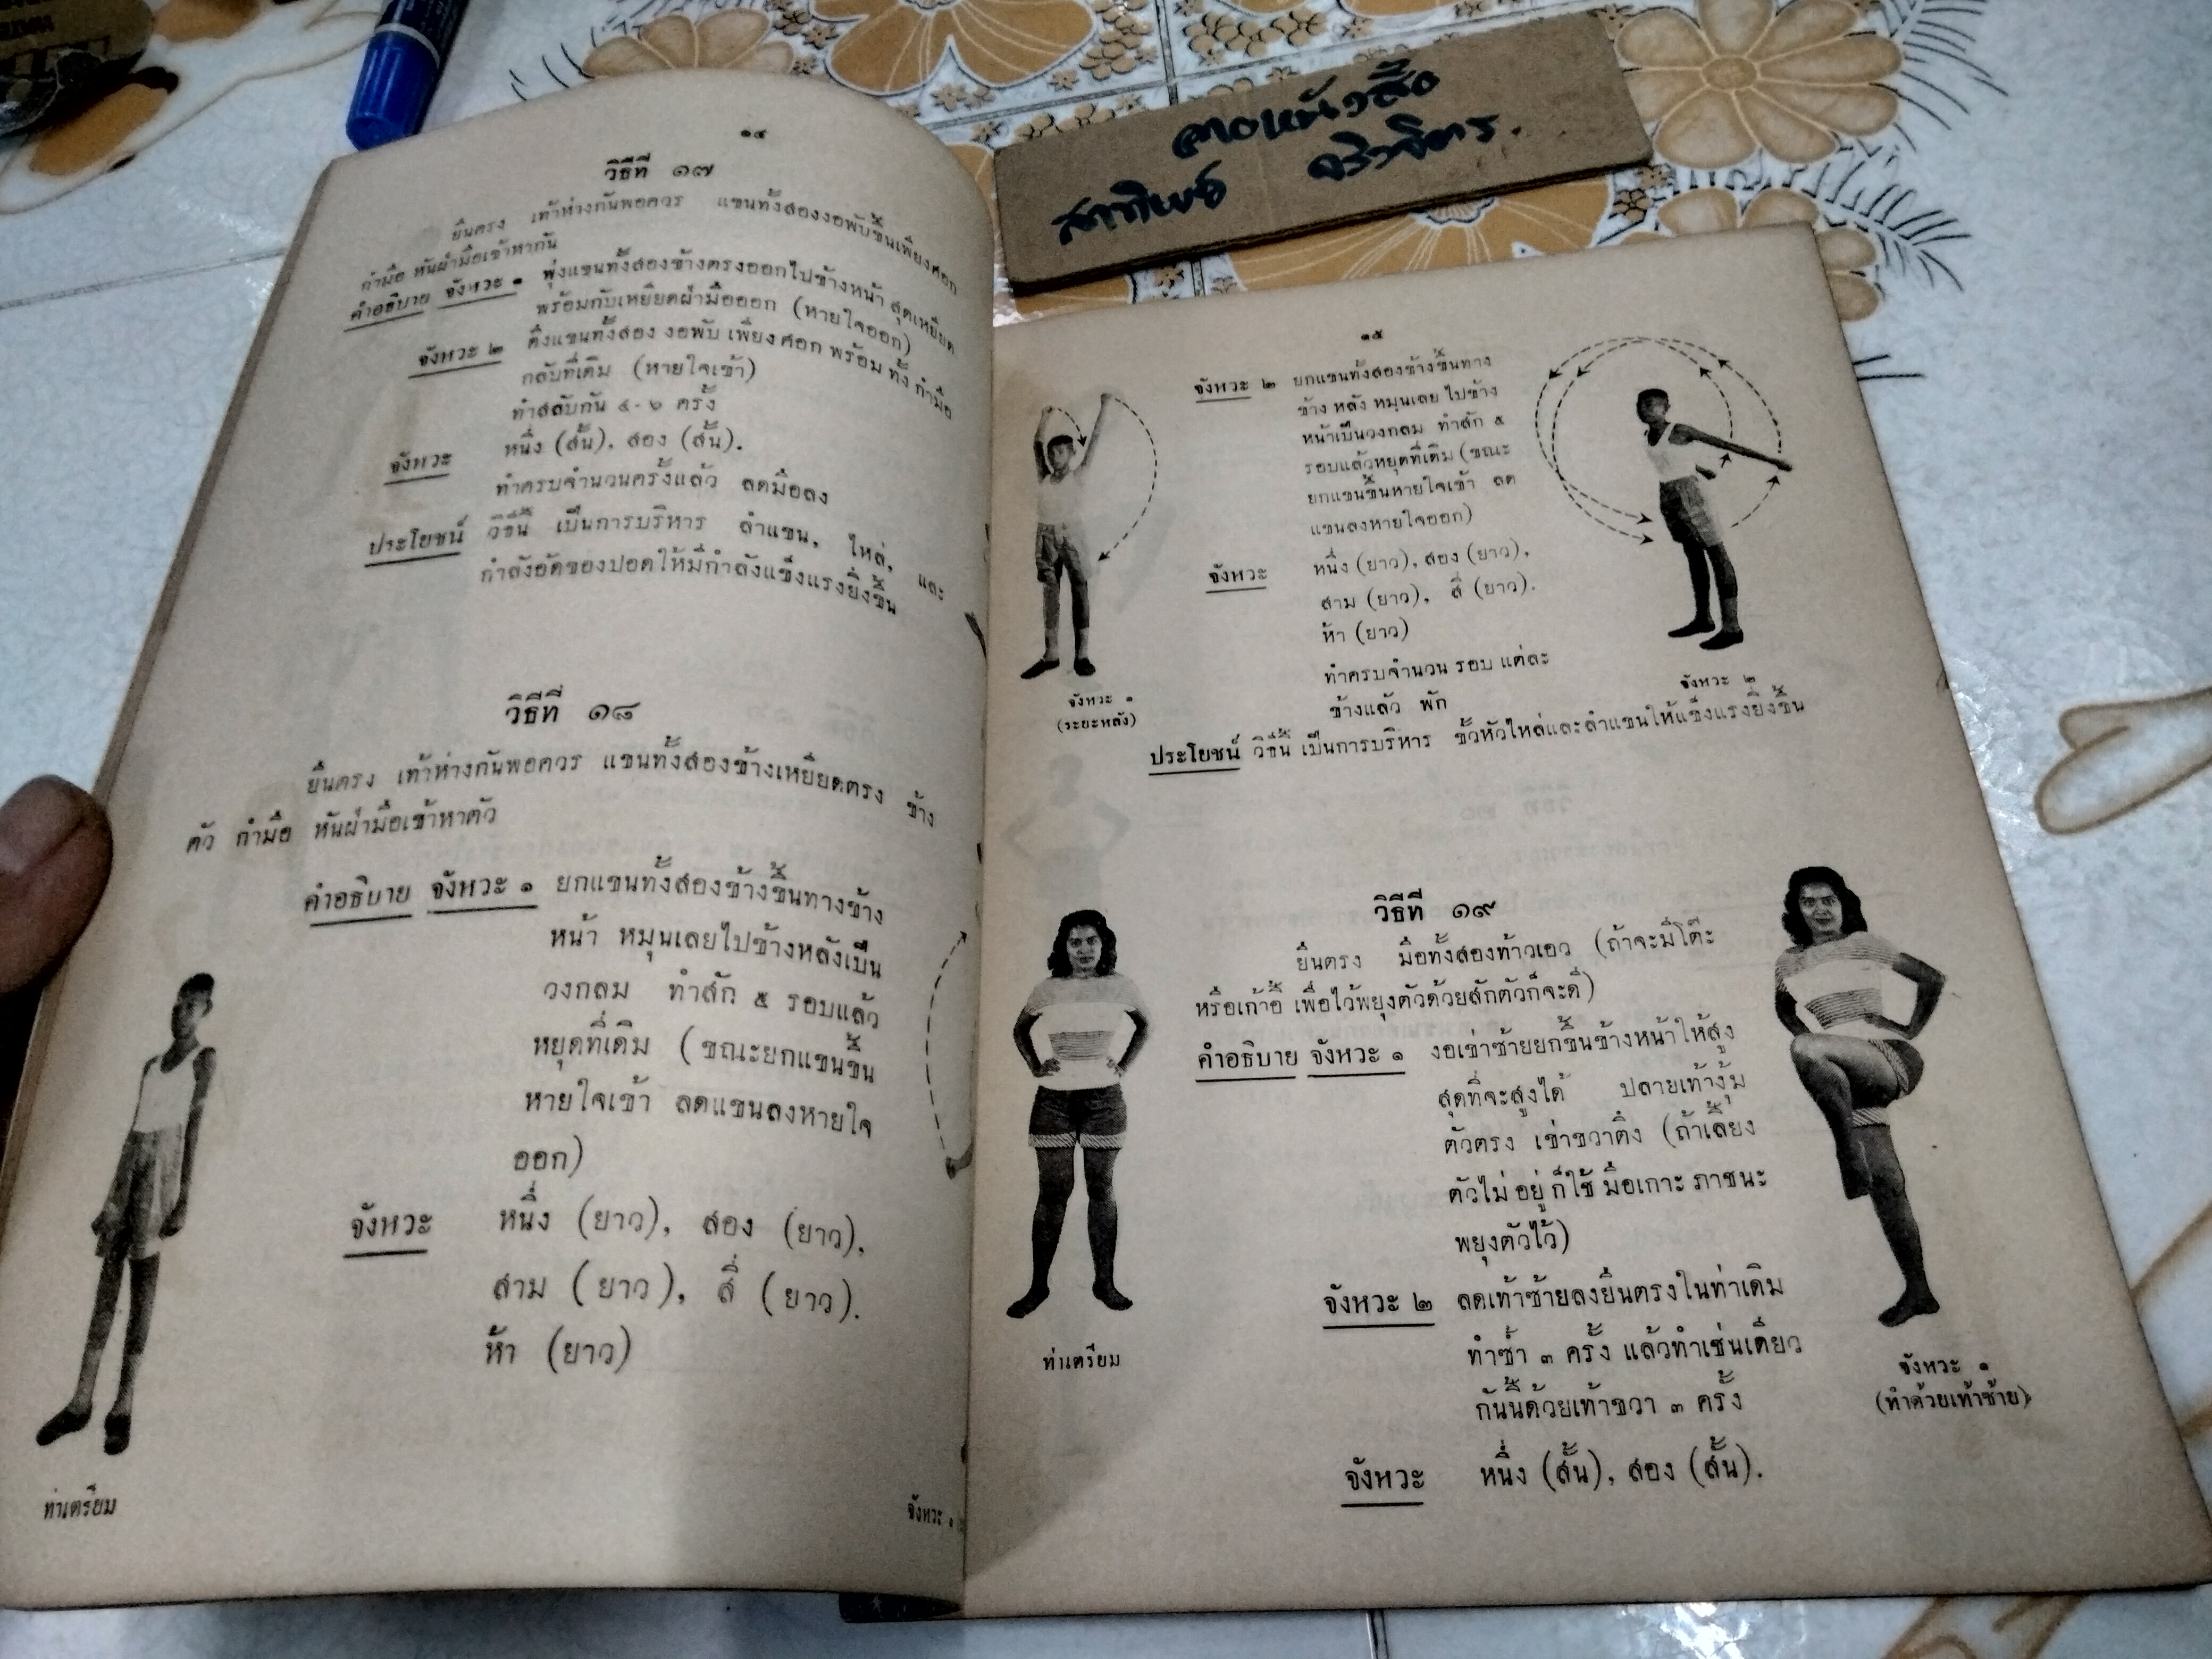 ๑๔
วิธีที่ ๑๗
ยืนตรง เท้าห่างกันพอควร แขนทั้งสองงอพับขึ้นเพียงศอก
กำมือ หันฝ่ามือเข้าหากัน
คำอธิบาย จังหวะ ๑ พุ่งแขนทั้งสองข้างตรงออกไปข้างหน้า สุดเหยียด
พร้อมกับเหยียดฝ่ามือออก (หายใจออก)
จังหวะ ๒ ดึงแขนทั้งสอง งอพับ เพียงศอก พร้อม ทั้ง กำมือ
กลับที่เดิม (หายใจเข้า)
ทำสลับกัน ๔-๖ ครั้ง
จังหวะ หนึ่ง (สั้น), สอง (สั้น).
ทำครบจำนวนครั้งแล้ว ลดมือลง
ประโยชน์ วิธีนี้ เป็นการบริหาร ลำแขน, ไหล่, และ
กำลังอัดของปอดให้มีกำลังแข็งแรงยิ่งขึ้น
วิธีที่ ๑๘
ยืนตรง เท้าห่างกันพอควร แขนทั้งสองข้างเหยียดตรง ข้าง
ตัว กำมือ หันฝ่ามือเข้าหาตัว
คำอธิบาย จังหวะ ๑ ยกแขนทั้งสองข้างขึ้นทางข้าง
หน้า หมุนเลยไปข้างหลังเป็น
วงกลม ทำสัก ๕ รอบแล้ว
หยุดที่เดิม (ขณะยกแขนขึ้น
หายใจเข้า ลดแขนลงหายใจ
ออก)
จังหวะ หนึ่ง (ยาว), สอง (ยาว),
สาม (ยาว), สี่ (ยาว).
ห้า (ยาว)
ท่าเตรียม
จังหวะ ๑
๑๕
จังหวะ ๒ ยกแขนทั้งสองข้างขึ้นทาง
ข้าง หลัง หมุนเลย ไปข้าง
หน้าเป็นวงกลม ทำสัก ๕
รอบแล้วหยุดที่เดิม (ขณะ
ยกแขนขึ้นหายใจเข้า ลด
แขนลงหายใจออก)
จังหวะ หนึ่ง (ยาว), สอง (ยาว),
สาม (ยาว), สี่ (ยาว).
ห้า (ยาว)
ทำครบจำนวน รอบ แต่ละ
ข้างแล้ว พัก
จังหวะ ๑
(ระยะหลัง)
จังหวะ ๒
ประโยชน์ วิธีนี้ เป็นการบริหาร ขั้วหัวไหล่และลำแขนให้แข็งแรงยิ่งขึ้น
วิธีที่ ๑๙
ยืนตรง มือทั้งสองท้าวเอว (ถ้าจะมีโต๊ะ
หรือเก้าอี้ เพื่อไว้พยุงตัวด้วยสักตัวก็จะดี)
คำอธิบาย จังหวะ ๑ งอเข่าซ้ายยกขึ้นข้างหน้าให้สูง
สุดที่จะสูงได้ ปลายเท้างุ้ม
ตัวตรง เข่าขวาตึง (ถ้าเลี้ยง
ตัวไม่ อยู่ ก็ใช้ มือเกาะ ภาชนะ
พยุงตัวไว้)
จังหวะ ๒ ลดเท้าซ้ายลงยืนตรงในท่าเดิม
ทำซ้ำ ๓ ครั้ง แล้วทำเช่นเดียว
กันนี้ด้วยเท้าขวา ๓ ครั้ง
จังหวะ หนึ่ง (สั้น), สอง (สั้น).
ท่าเตรียม
จังหวะ ๑
(ทำด้วยเท้าซ้าย)